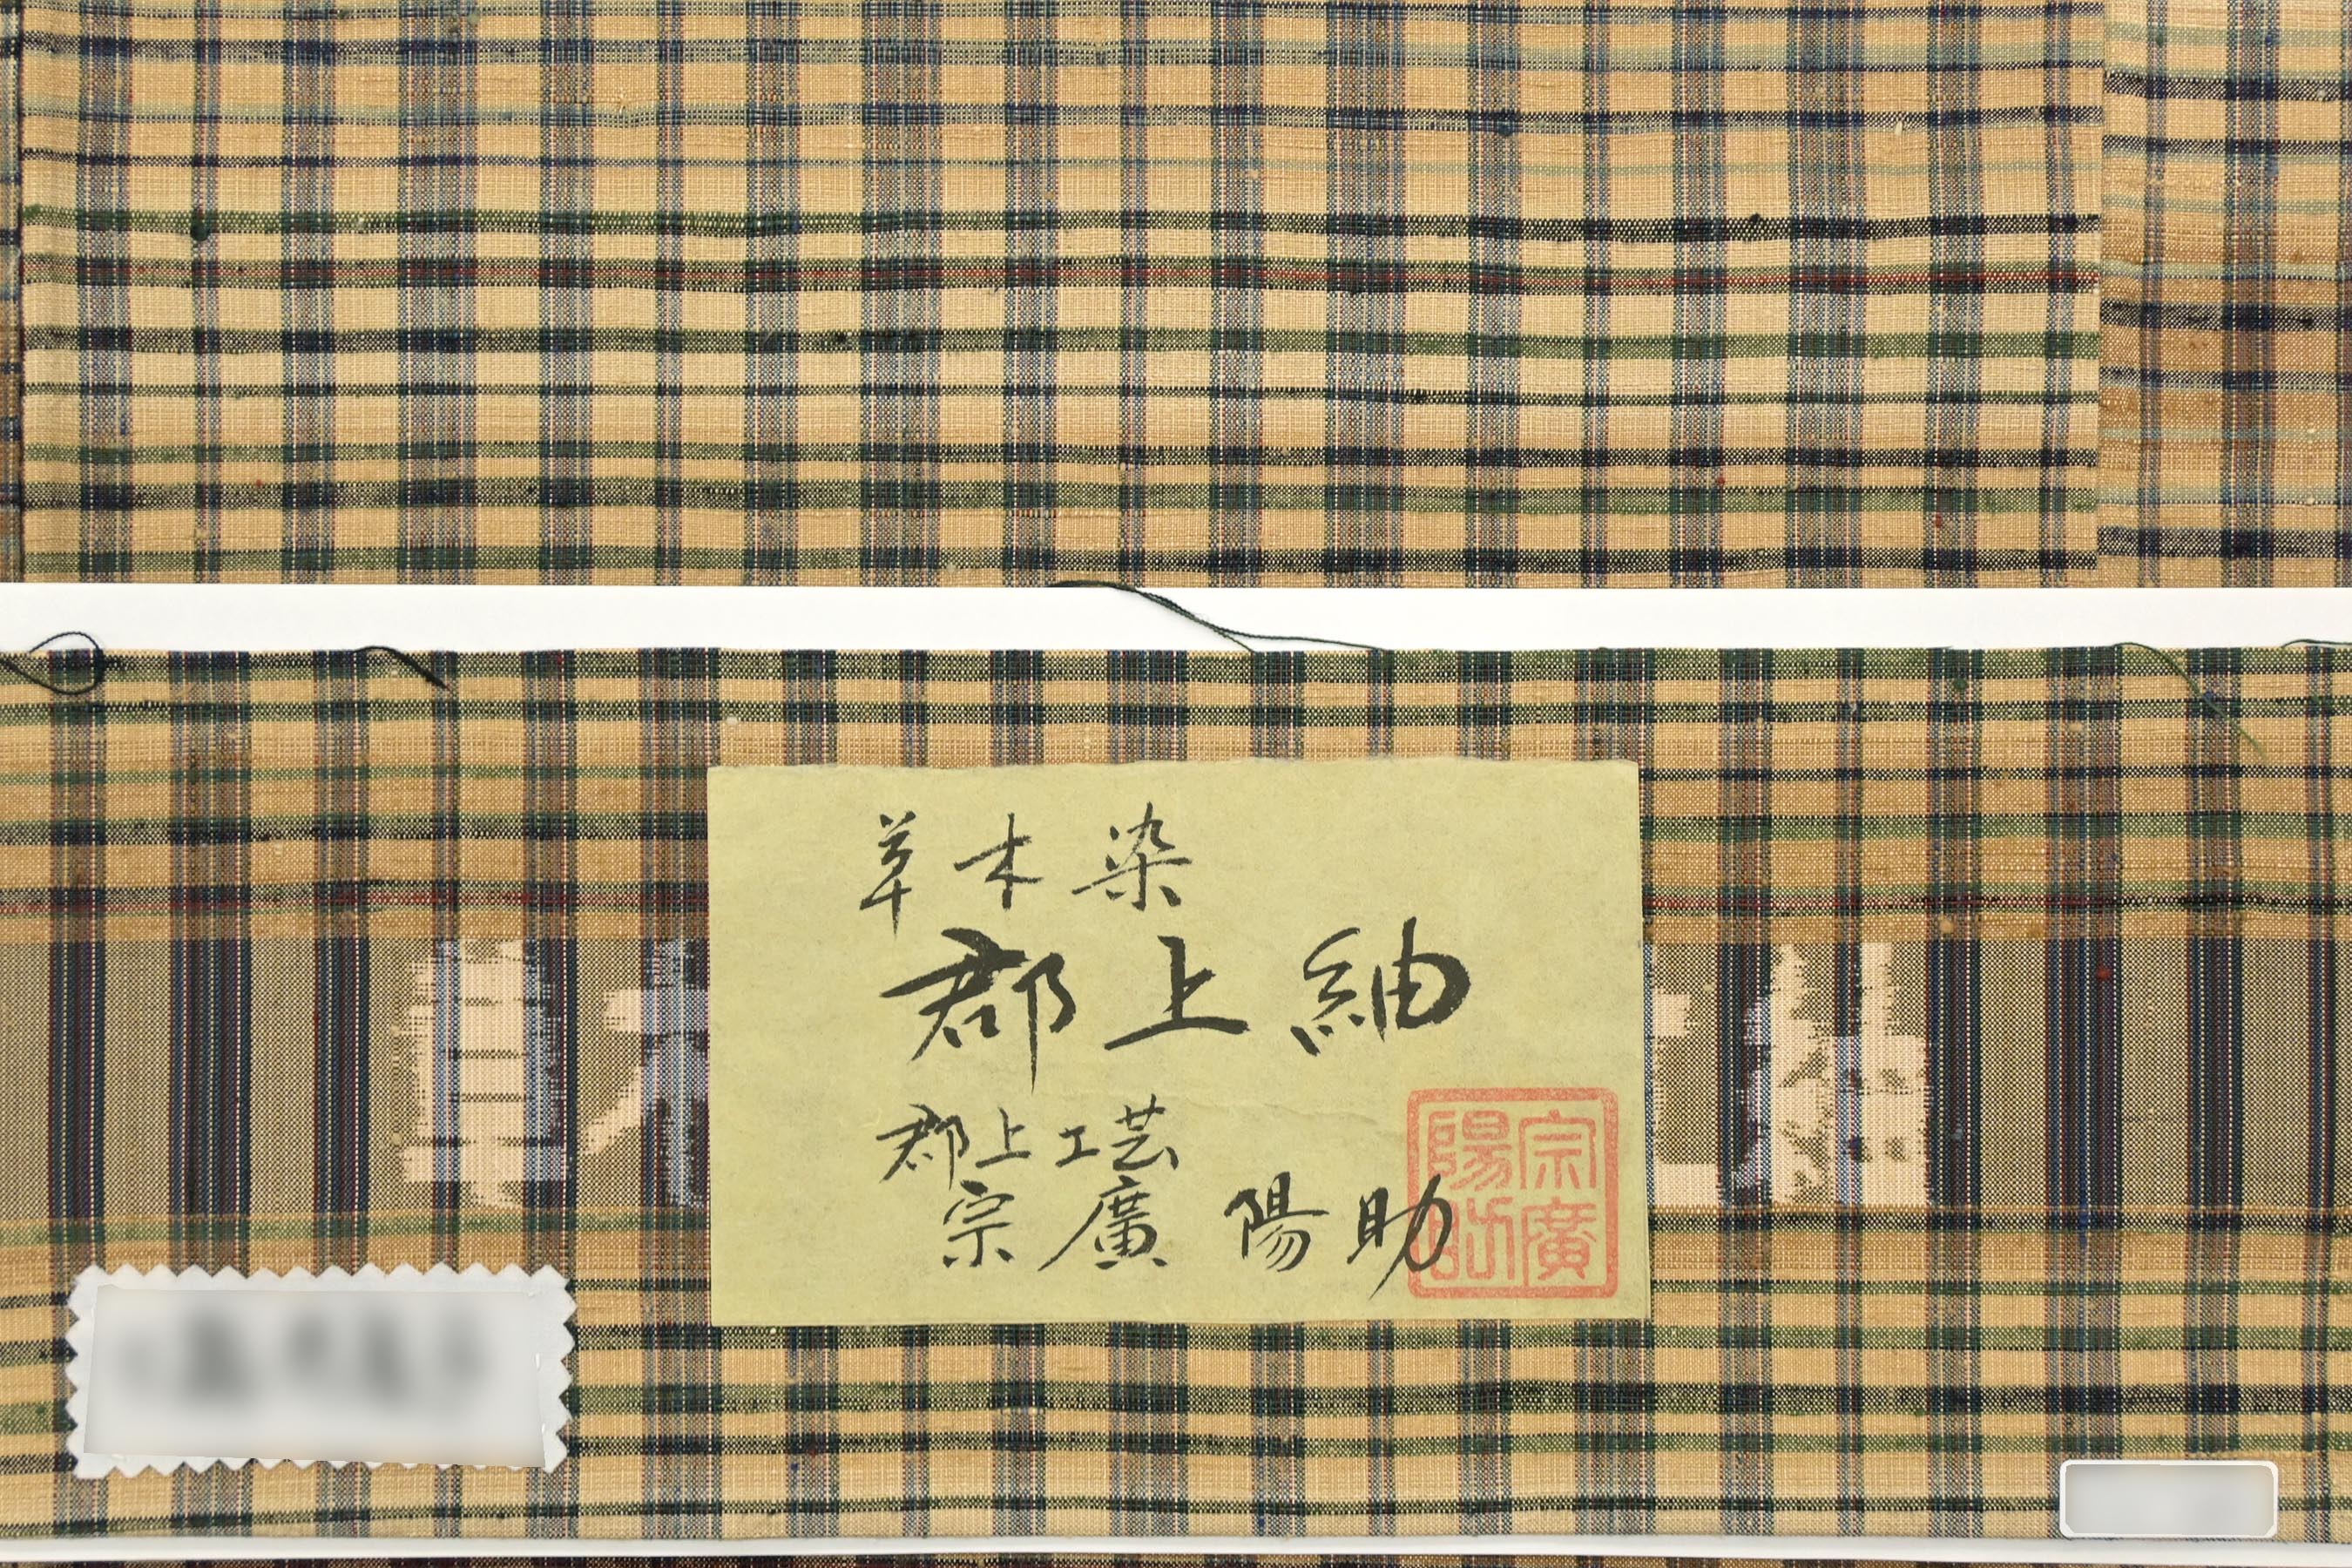 草木染
郡上紬
郡上工芸
宗廣陽助
宗廣
陽助